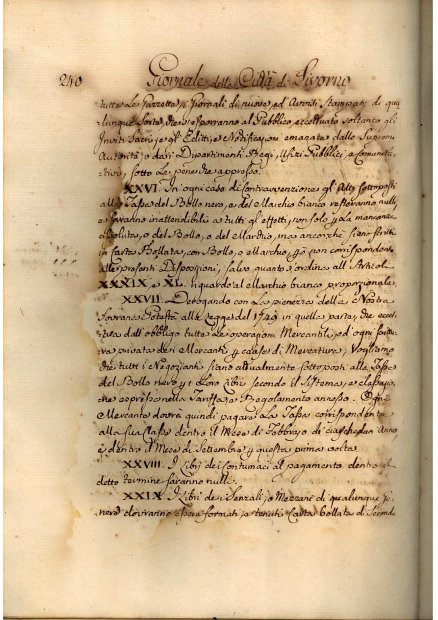 240 Giornale della Città di Livorno
tutte le Gazzette, e Giornali di nuove, ed Avvisi Stampati di qua
lunque Sorte, che si esporranno al Pubblico, eccettuato soltanto gl'
Inviti Sacri, e gl' Editti, e Notificazioni emanate dalle Supreme
Autorità, o dai Dipartimenti Regj, Ufizi Pubblici, e Comunita-
tivi, sotto le pene che appresso.
XXVI. In ogni caso di Contravvenzione gl' Atti sottoposti
alla Tassa del Bollo nero, e del Marchio bianco resteranno nulli,
e saranno inattendibili a tutti gl' effetti, non solo p la mancanza
assoluta, o del Bollo, o del Marchio, ma ancorchè siano scritti
in Carta Bollata, con Bollo, o Marchio, p.ò non corrispondente
alle presenti Disposizioni, salvo quanto s'ordina all' Articol.
XXXIX e XL. riguardo al Marchio bianco proporzionale.
XXVII. Derogando con la pienezza della Nostra
Sovrana Potestà alla Legge del 1749 in quella parte, che ecc
ettua dall' obbligo tutte le operazioni Mercantili, ed ogni scrittura
privata dei Mercanti p causa di Mercatura, Vogliamo
che tutti i Negozianti siano attualmente sottoposti alla Tassa
del Bollo nero p i Loro Libri secondo il Sistema, e classazio-
ne espressa nella Tariffa, e Regolamento annesso. Ogni
Mercante dovrà quindi pagare la Tassa corrispondente
alla sua Classe dentro il Mese di Febbrajo di ciaschedun Anno,
e dentro il Mese di Settembre p questa prima volta.
XXVIII. I Libri dei Contumaci al pagamento dentro il
detto termine saranno nulli.
XXIX. I Libri dei Sensali, o Mezzani di qualunque ge-
nere dovranno esser formati, e tenuti Carta Bollata di Seconda